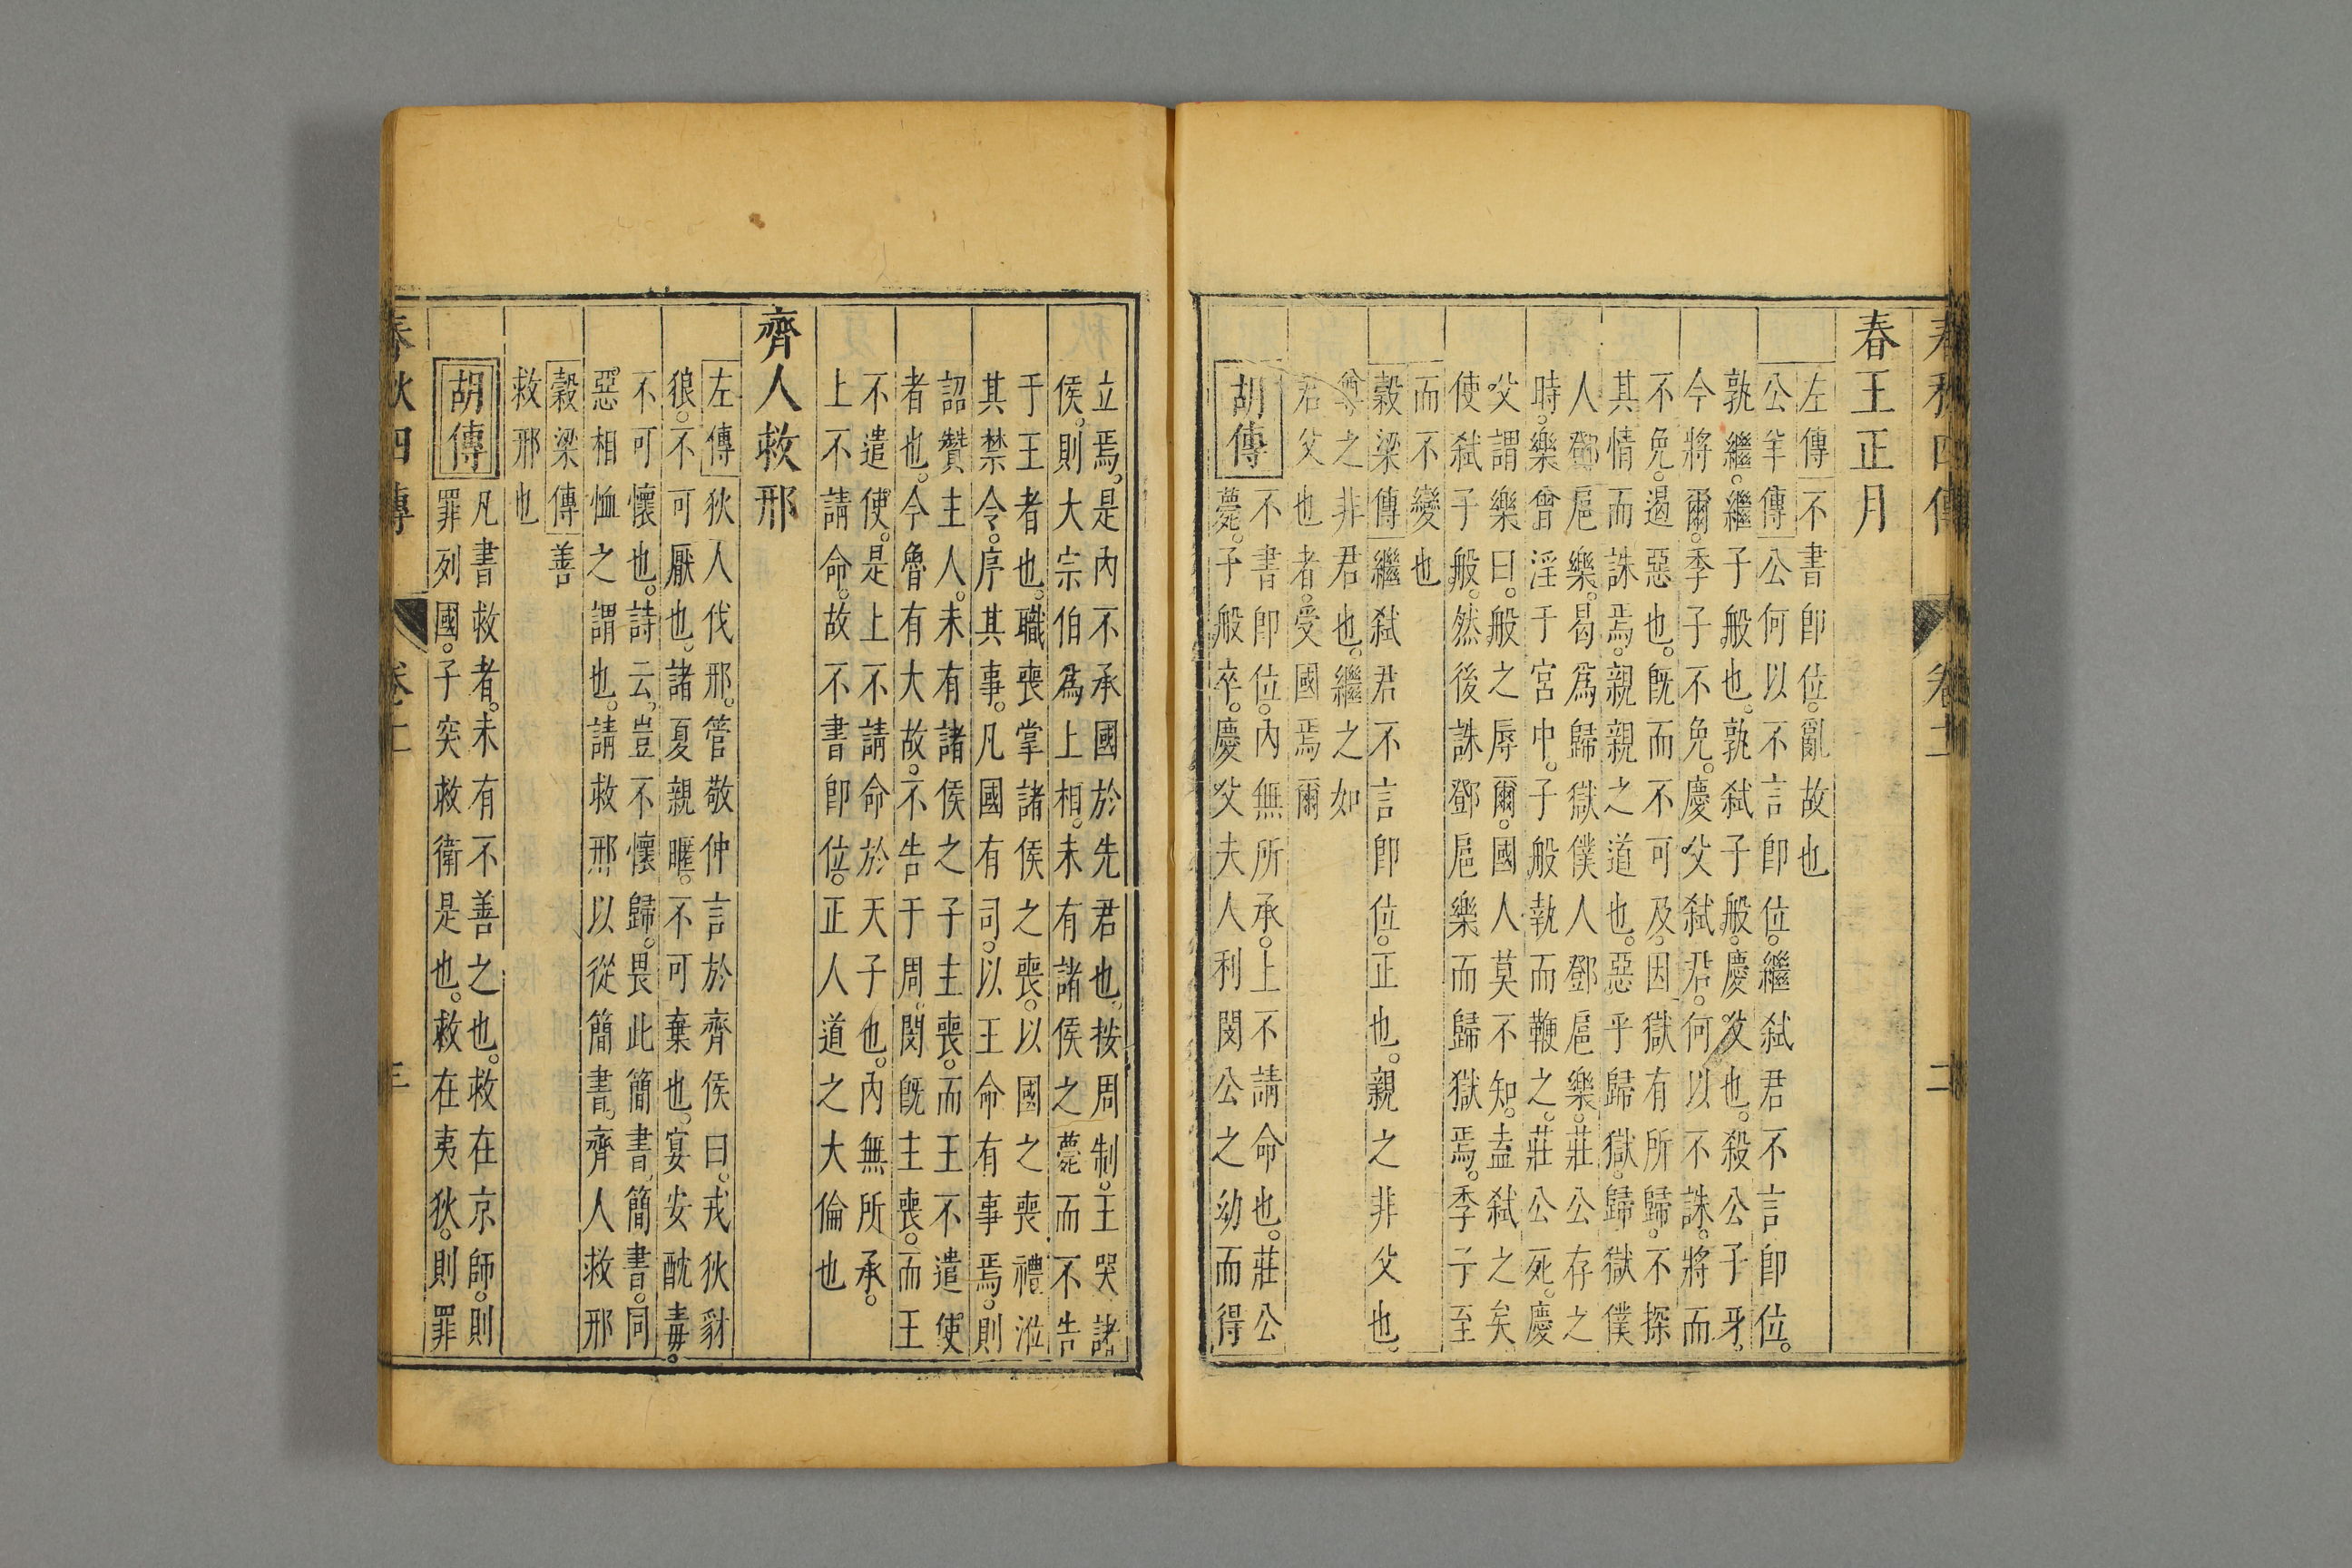 春秋四傳 卷 二
春王正月
左傳不書即位。亂故也
公羊傳公何以不言即位。繼弑君不言即位。
孰繼。繼子般也。孰弑子般。慶父也。殺公子牙。
今將爾。季子不免。慶父弑君。何以不誅。將而
不免。遏惡也。既而不可及。因獄有所歸。不探
其情而誅焉。親親之道也。惡乎歸獄。歸獄僕
人鄧扈樂。曷爲歸獄僕人鄧扈樂。莊公存之
時。樂曾淫于宮中。子般執而鞭之。莊公死。慶
父謂樂曰。般之辱爾。國人莫不知。盍弑之矣。
使弑子般。然後誅鄧扈樂而歸獄焉。季子至
而不變也
穀梁傳繼弑君不言即位。正也。親之非父也。
尊之非君也。繼之如
君父也者。受國焉爾
胡傳
不書即位。內無所承。上不請命也。莊公
薨。子般卒。慶父夫人利閔公之幼而得
立焉。是內不承國於先君也。按周制。王哭諸
侯。則大宗伯爲上相。未有諸侯之薨而不告
于王者也。職喪掌諸侯之喪。以國之喪禮涖
其禁令。序其事。凡國有司。以王命有事焉。則
詔贊主人。未有諸侯之子主喪。而王不遣使
者也。今魯有大故。不告于周。閔既主喪。而王
不遣使。是上不請命於天子也。內無所承。
上不請命。故不書即位。正人道之大倫也
齊人救邢
左傳狄人伐邢。管敬仲言於齊侯曰。戎狄豺
狼。不可厭也。諸夏親暱。不可棄也。宴安酖毒。
不可懷也。詩云。豈不懷歸。畏此簡書。簡書。同
惡相恤之謂也。請救邢以從簡書。齊人救邢
穀梁傳善
救邢也
胡傳
凡書救者。未有不善之也。救在京師。則
罪列國。子突救衛是也。救在夷狄。則罪
春秋四傳 三